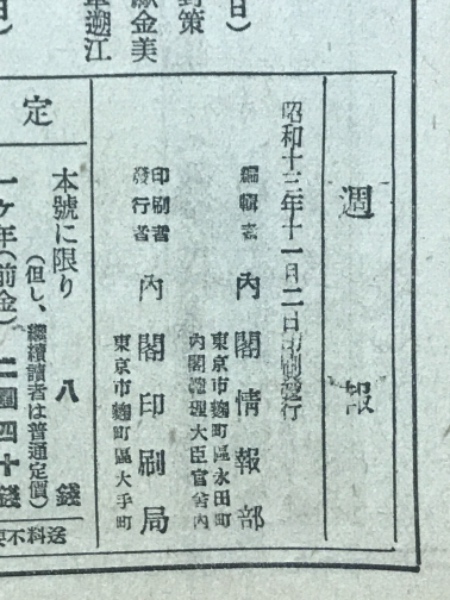 日）
對策
獻金美
軍遡江
週報
昭和十三年十一月二日印刷發行
編輯者 內閣情報部
東京市麴町區永田町
內閣總理大臣官舍內
印刷者
發行者 內閣印刷局
東京市麴町區大手町
定
本號に限り 八錢
（但し、繼續讀者は普通定價）
一ケ年（前金）二圓四十錢
送料不要